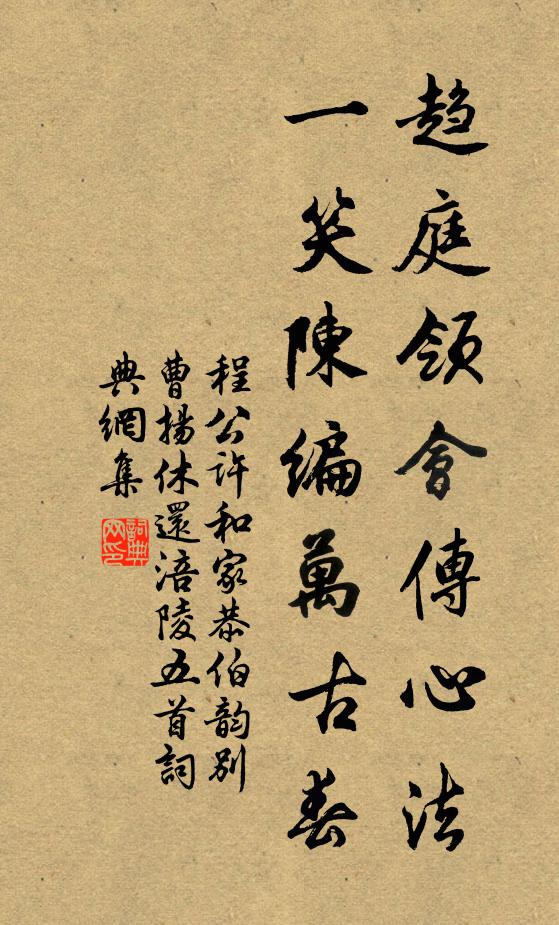 趨庭領會傳心法
一笑陳編萬古春
程公許和家恭伯韵別
曹揚休還涪陵五首詞
典網集
詞典网印